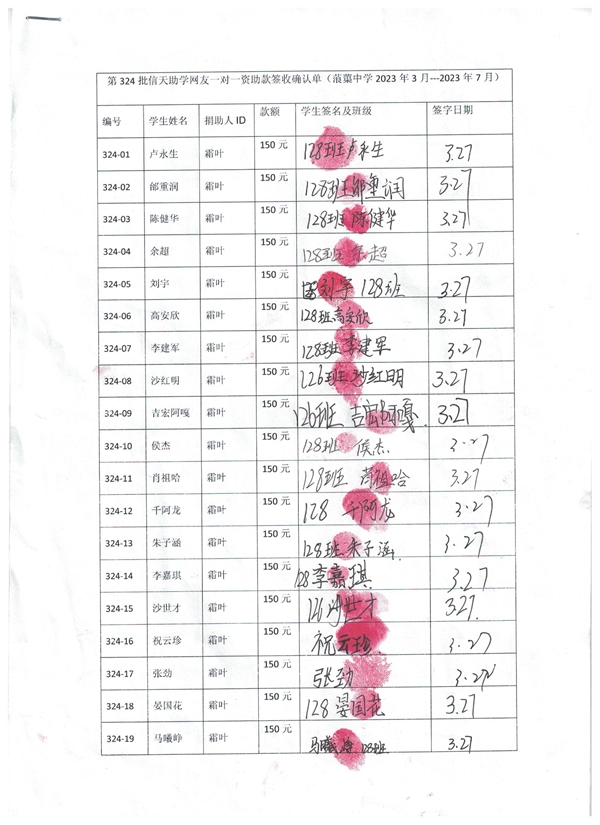 第 324 批信天助学网友一对一资助款签收确认单（蒗蕖中学 2023 年 3 月---2023 年 7 月）
编号 学生姓名 捐助人 ID 款额 学生签名及班级 签字日期
324-01 卢永生 霜叶 150 元 128班卢永生 3.27
324-02 邰重润 霜叶 150 元 128班 3.27
324-03 陈健华 霜叶 150 元 128班 陈健华 3.27
324-04 余超 霜叶 150 元 128班 余超 3.27
324-05 刘宇 霜叶 150 元 刘宇 128班 3.27
324-06 高安欣 霜叶 150 元 128班高安欣 3.27
324-07 李建军 霜叶 150 元 128班李建军 3.27
324-08 沙红明 霜叶 150 元 126班 沙红明 3.27
324-09 吉宏阿嘎 霜叶 150 元 126班 吉宏阿嘎 3.27
324-10 侯杰 霜叶 150 元 128班 侯杰 3.27
324-11 肖祖哈 霜叶 150 元 128班 肖祖哈 3.27
324-12 千阿龙 霜叶 150 元 128 千阿龙 3.27
324-13 朱子涵 霜叶 150 元 128班 朱子涵 3.27
324-14 李嘉琪 霜叶 150 元 128李嘉琪 3.27
324-15 沙世才 霜叶 150 元 126沙世才 3.27
324-16 祝云珍 霜叶 150 元 祝云珍 3.27
324-17 张劲 霜叶 150 元 张劲 3.27
324-18 晏国花 霜叶 150 元 128晏国花 3.27
324-19 马曦峥 霜叶 150 元 马曦峥 128班 3.27